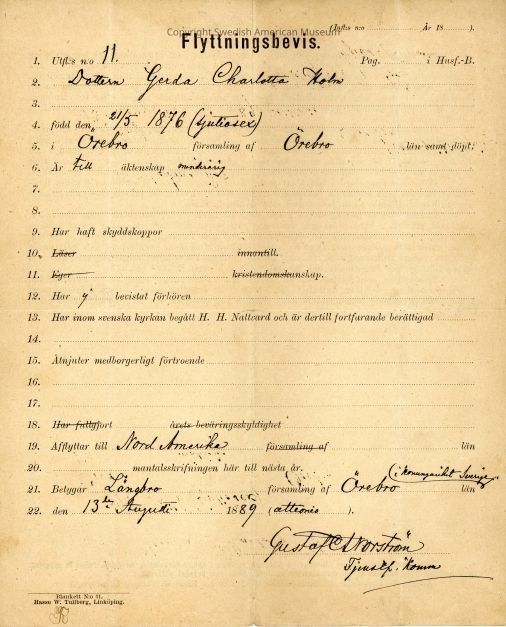 Copyright Swedish American Museum
(Infl:s n:o År 18 ).
Flyttningsbevis.
1. Utfl:s n:o 11. Pag. i Husf.-B.
2. Dottern Gerda Charlotta Holm
3.
4. född den 21/5 1876 (sjutiosex)
5. i Örebro församling af Örebro län samt döpt;
6. Är till äktenskap minderårig
7.
8.
9. Har haft skyddskoppor
10. Läser innantill.
11. Eger kristendomskunskap.
12. Har ej bevistat förhören
13. Har inom svenska kyrkan begått H. H. Nattvard och är dertill fortfarande berättigad
14.
15. Åtnjuter medborgerligt förtroende
16.
17.
18. Har fullgjort årets beväringsskyldighet
19. Afflyttar till Nord Amerika församling af län
20. mantalsskrifningen här till nästa år.
(i konungariket Sverige
21. Betygar Längbro församling af Örebro län
22. den 13de Augusti 1889 (åttionio ).
Gustaf Norström
Tjenstf. Komm
Blankett N:o 11.
Hasse W. Tullberg, Linköping.